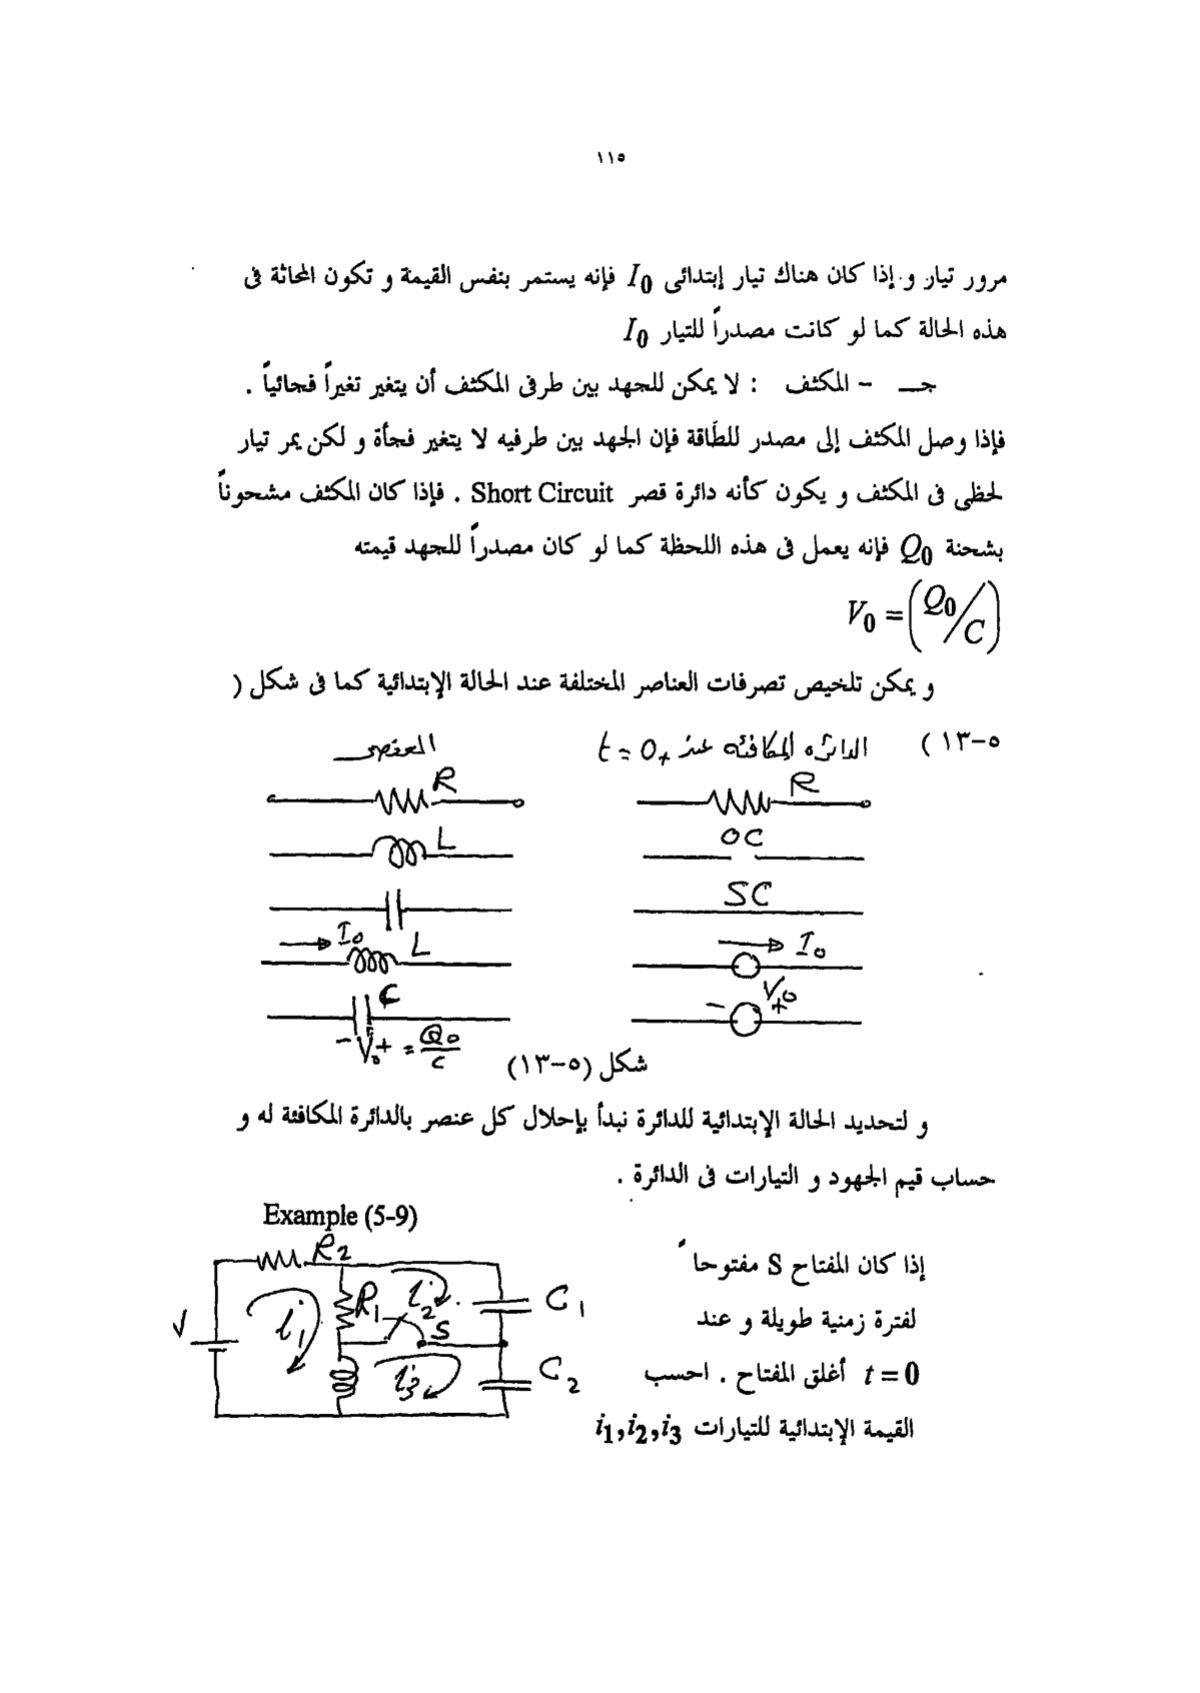 ١١٥
مرور تيار و إذا كان هناك تيار إبتدائى I0 فإنه يستمر بنفس القيمة و تكون المحاثة فى
هذه الحالة كما لو كانت مصدراً للتيار I0
جـ - المكثف : لا يمكن للجهد بين طرفى المكثف أن يتغير تغيراً فجائياً .
فإذا وصل المكثف إلى مصدر للطَاقة فإن الجهد بين طرفيه لا يتغير فجأة و لكن يمر تيار
لحظى فى المكثف و يكون كأنه دائرة قصر Short Circuit . فإذا كان المكثف مشحوناً
بشحنة Q0 فإنه يعمل فى هذه اللحظة كما لو كان مصدراً للجهد قيمته
V0 = (Q0/C)
و يمكن تلخيص تصرفات العناصر المختلفة عند الحالة الإبتدائية كما فى شكل (
٥-١٣ )
العنصر
الدائره المكافئه عند t = 0+
R
R
L
OC
SC
I0 L
I0
C
- V0 + = Q0/C
- V0 +
شكل (٥-١٣)
و لتحديد الحالة الإبتدائية للدائرة نبدأ بإحلال كل عنصر بالدائرة المكافئة له و
حساب قيم الجهود و التيارات فى الدائرة .
Example (5-9)
إذا كان المفتاح S مفتوحاً
لفترة زمنية طويلة و عند
t = 0 أغلق المفتاح . احسب
القيمة الإبتدائية للتيارات i1,i2,i3
R2
V
i1
R1
i2
S
C1
i3
C2